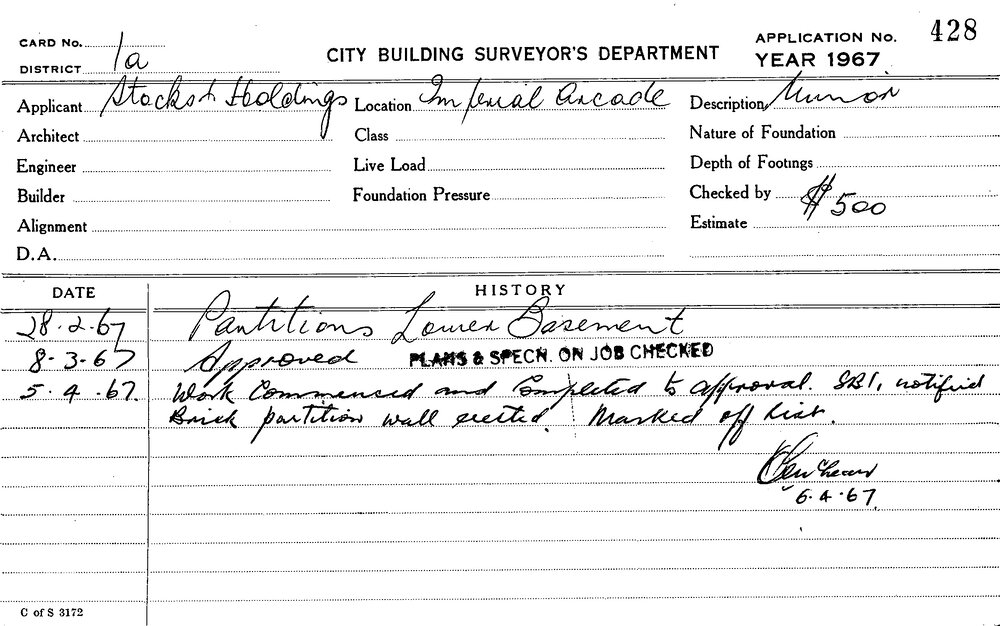 CARD No.
DISTRICT 1a
CITY BUILDING SURVEYOR'S DEPARTMENT
APPLICATION No. 428
YEAR 1967
Applicant Stocks & Holdings Location Imperial Arcade Description Minor
Architect Class Nature of Foundation
Engineer Live Load Depth of Footings
Builder Foundation Pressure Checked by
Alignment Estimate $500
D.A.
DATE HISTORY
28.2.67 Partitions Lower Basement
8.3.67 Approved PLANS & SPECN. ON JOB CHECKED
5.4.67. Work Commenced and Completed to approval. SBI, notified
Brick partition wall erected. Marked off List.
6.4.67.
C of S 3172